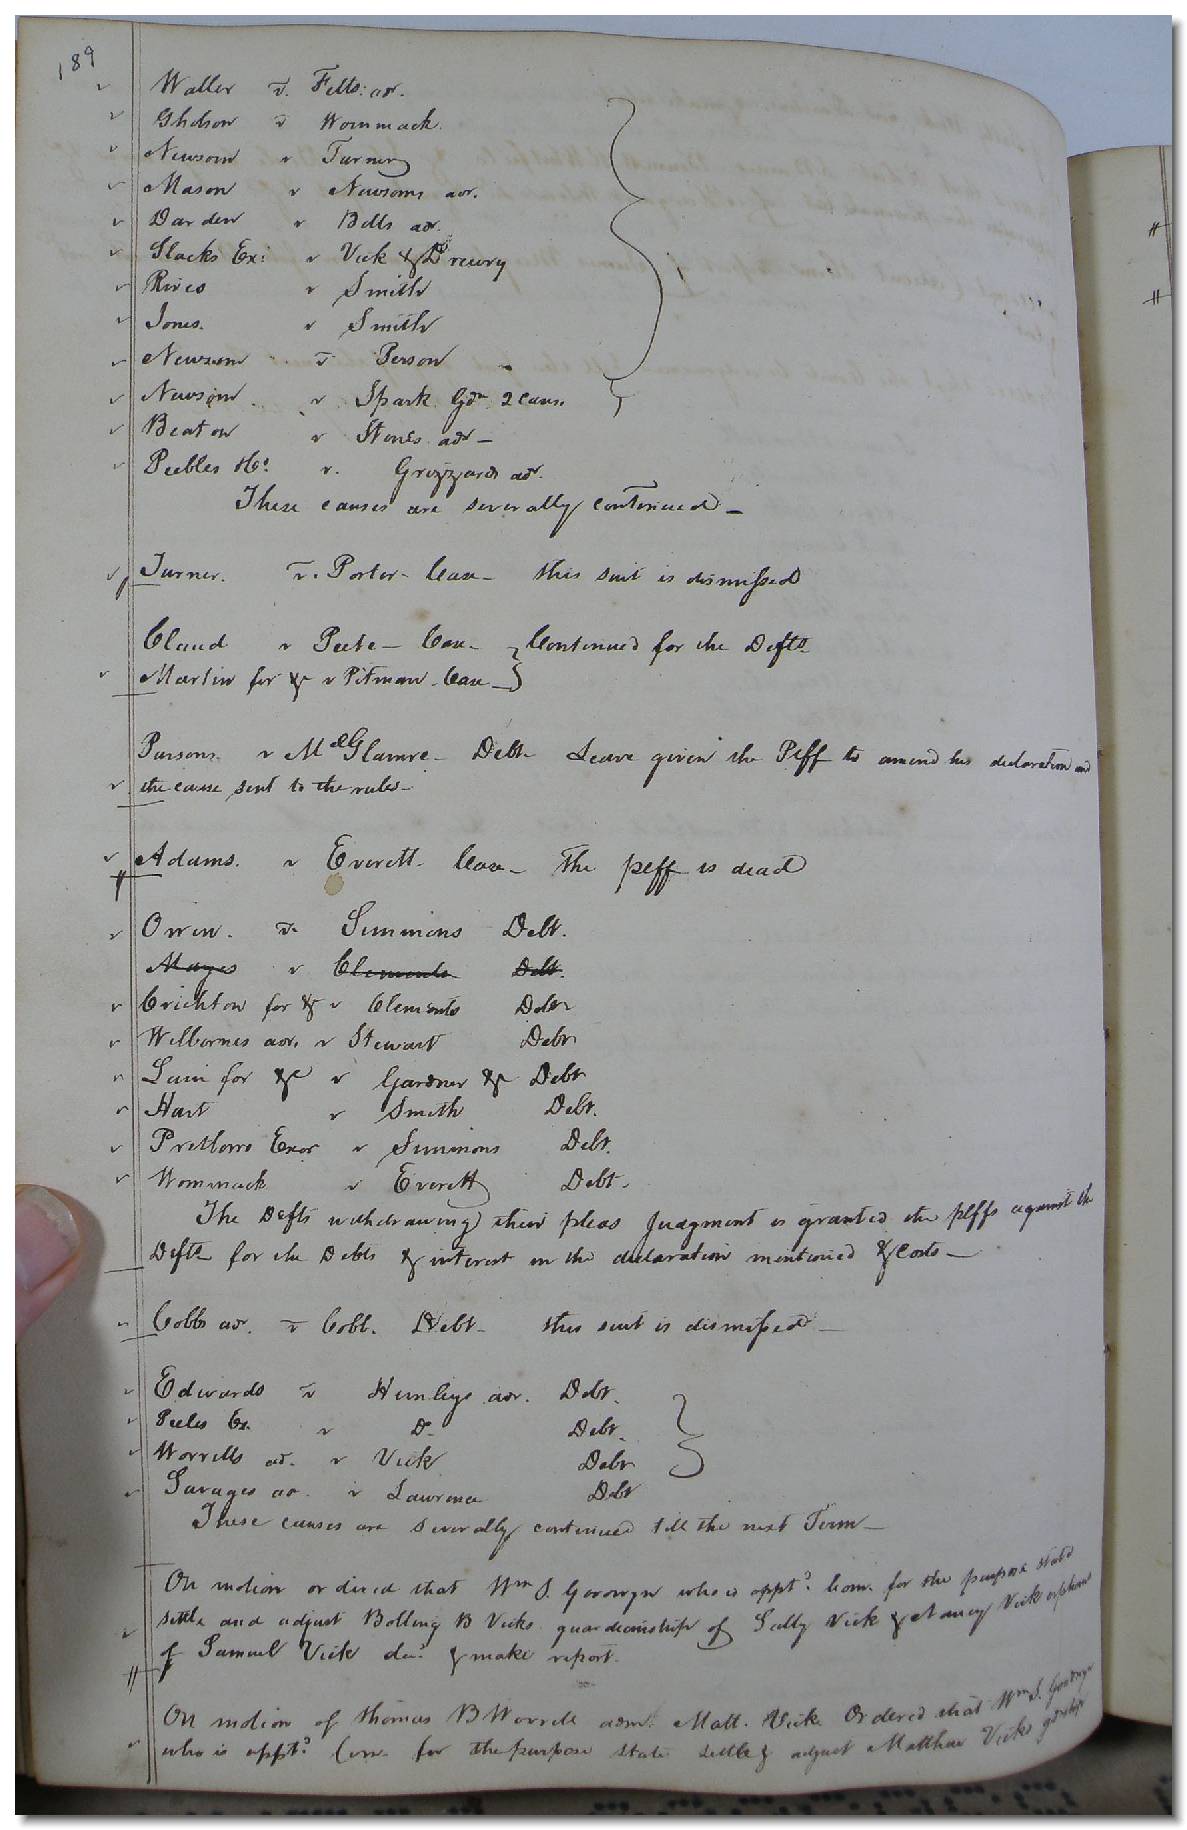 189
Waller v. Felts: adr.
Gholson v Wommack.
Newsom v Turner
Mason v Newsoms adr.
Darden v Bells adr.
Slacks Ex: v Vick & Drewry
Rives v Smith
Jones. v Smith
Newsom v Person
Newsom v Spark Gdn 2 Caus.
Beaton v Stones adr –
Peebles &c. v. Grizzards adr.
These causes are severally continued –
Turner. v. Porter – Case – this suit is dismissed
Claud v Peete – Case – Continued for the Defts.
Martin for &c v Pitman – Case –
Parsons v McGlamre – Debt – Leave given the Plff to amend his declaration and
the cause sent to the rules –
Adams. v Everett – Case – The plff is dead
Owen. v. Simmons Debt.
Mayes v Clements Debt.
Crichton for &c v Clements Debt
Welbornes adr. v Stewart Debt
Lain for &c v Gardner &c Debt
Hart v Smith Debt.
Pretlows Exor v Simmons Debt.
Wommack v Everett Debt.
The Defts withdrawing their pleas Judgment is granted the plffs against the
Defts for the Debts & interest in the declaration mentioned & Costs –
Cobbs adr. v Cobb. Debt – this suit is dismissed –
Edwards v Hunleys adr. Debt.
Peeles Ex. v Do. Debt.
Worrells ad. v Vick Debt
Savages ad. v Lawrence Debt
These causes are severally continued till the next Term –
On motion ordered that Wm S. Goodwyn who is appt.d Com. for the purpose state
settle and adjust Bolling B Vicks guardianship of Sally Vick & Nancy Vick orphans
of Samuel Vick decd. & make report.
On motion of Thomas B Worrell adm. Matt. Vick Ordered that Wm S. Goodwyn
who is appt.d Com. for the purpose state settle & adjust Matthew Vicks gdnship